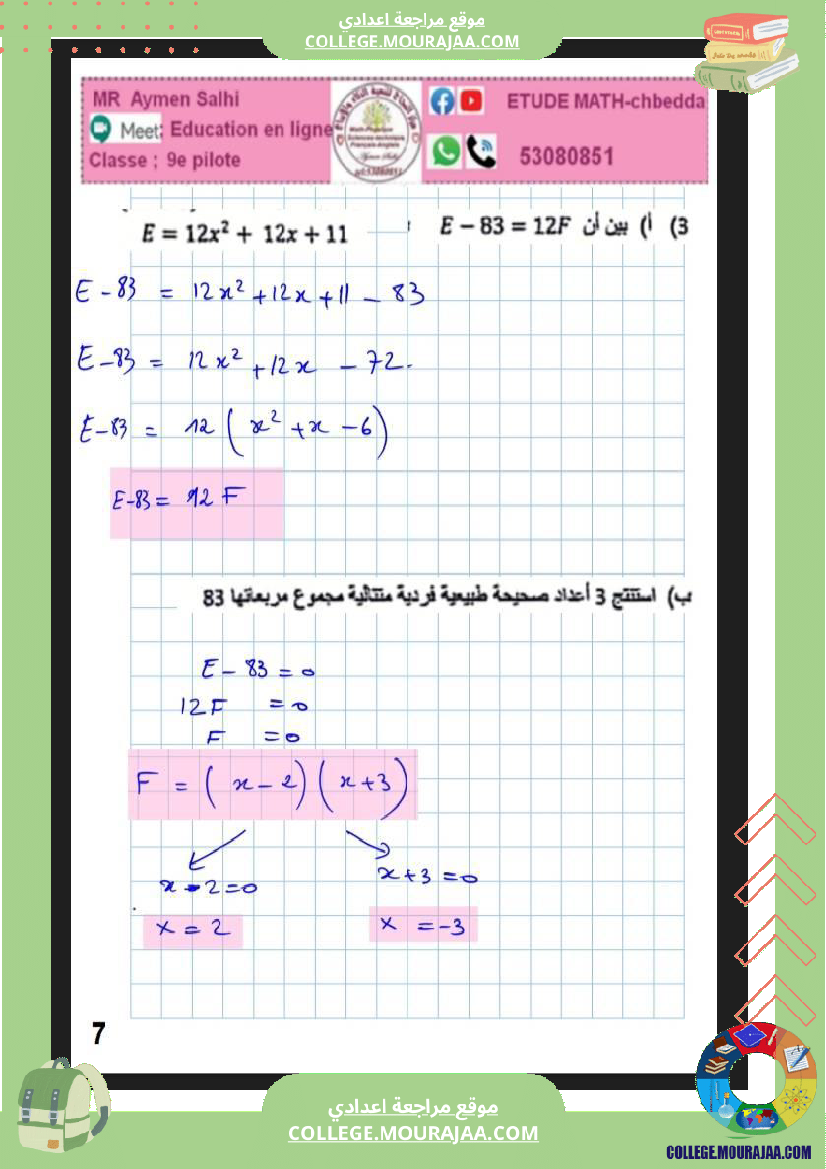 موقع مراجعة اعدادي
COLLEGE.MOURAJAA.COM
MR Aymen Salhi
Meet: Education en ligne
Classe ; 9e pilote
ETUDE MATH-chbedda
53080851
3) أ) بين أن E − 83 = 12F
E = 12x² + 12x + 11
E - 83 = 12x² + 12x + 11 - 83
E - 83 = 12x² + 12x - 72.
E - 83 = 12 (x² + x - 6)
E - 83 = 12 F
ب) استنتج 3 أعداد صحيحة طبيعية فردية متتالية مجموع مربعاتها 83
E - 83 = 0
12F = 0
F = 0
F = (x - 2)(x + 3)
x - 2 = 0
x + 3 = 0
x = 2
x = -3
7
موقع مراجعة اعدادي
COLLEGE.MOURAJAA.COM
COLLEGE.MOURAJAA.COM